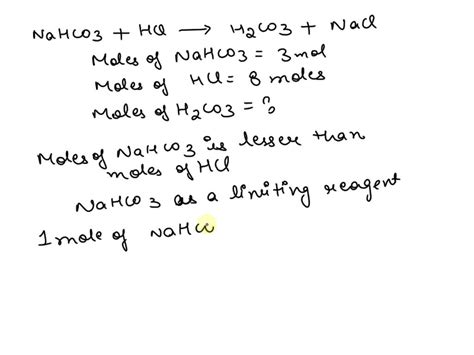 NaHCO3 + HCl → H2CO3 + NaCl
Moles of NaHCO3 = 3 mol
Moles of HCl = 8 moles
Moles of H2CO3 = ?
Moles of NaHCO3 is lesser than
moles of HCl
NaHCO3 as a limiting reagent
1 mole of NaHCO